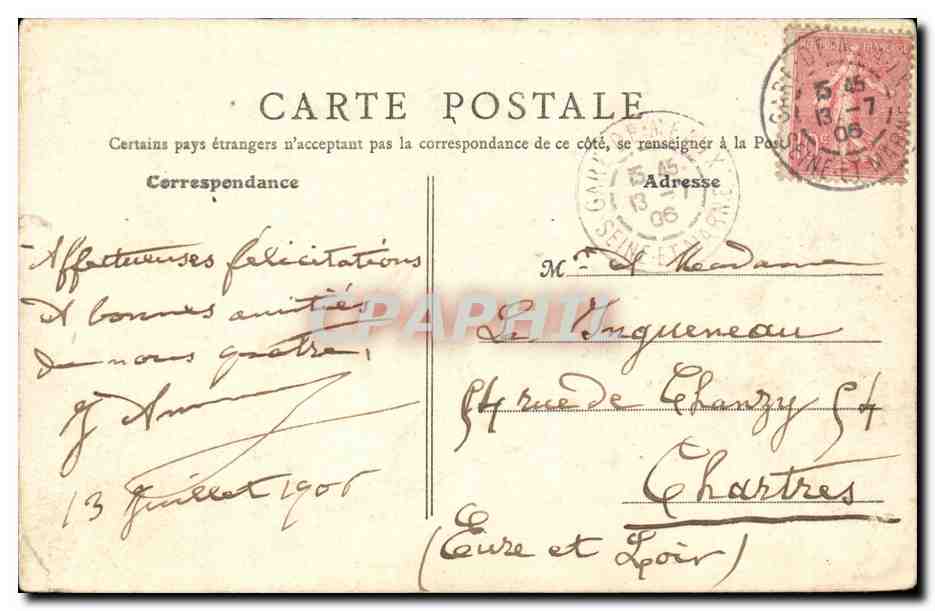 CARTE POSTALE
Certains pays étrangers n'acceptant pas la correspondance de ce côté, se renseigner à la Poste
Correspondance
Affectueuses félicitations
et bonnes amitiés
de nous quatre,
13 Juillet 1906
Adresse
Mr et Madame
L. Ingueneau
54 rue de Chanzy 54
Chartres
(Eure et Loir)
GARE DE MEAUX
15 45
13 -7
06
SEINE-ET-MARNE
GARE DE MEAUX
15 45
13 -7
06
SEINE-ET-MARNE
CPAPHIL